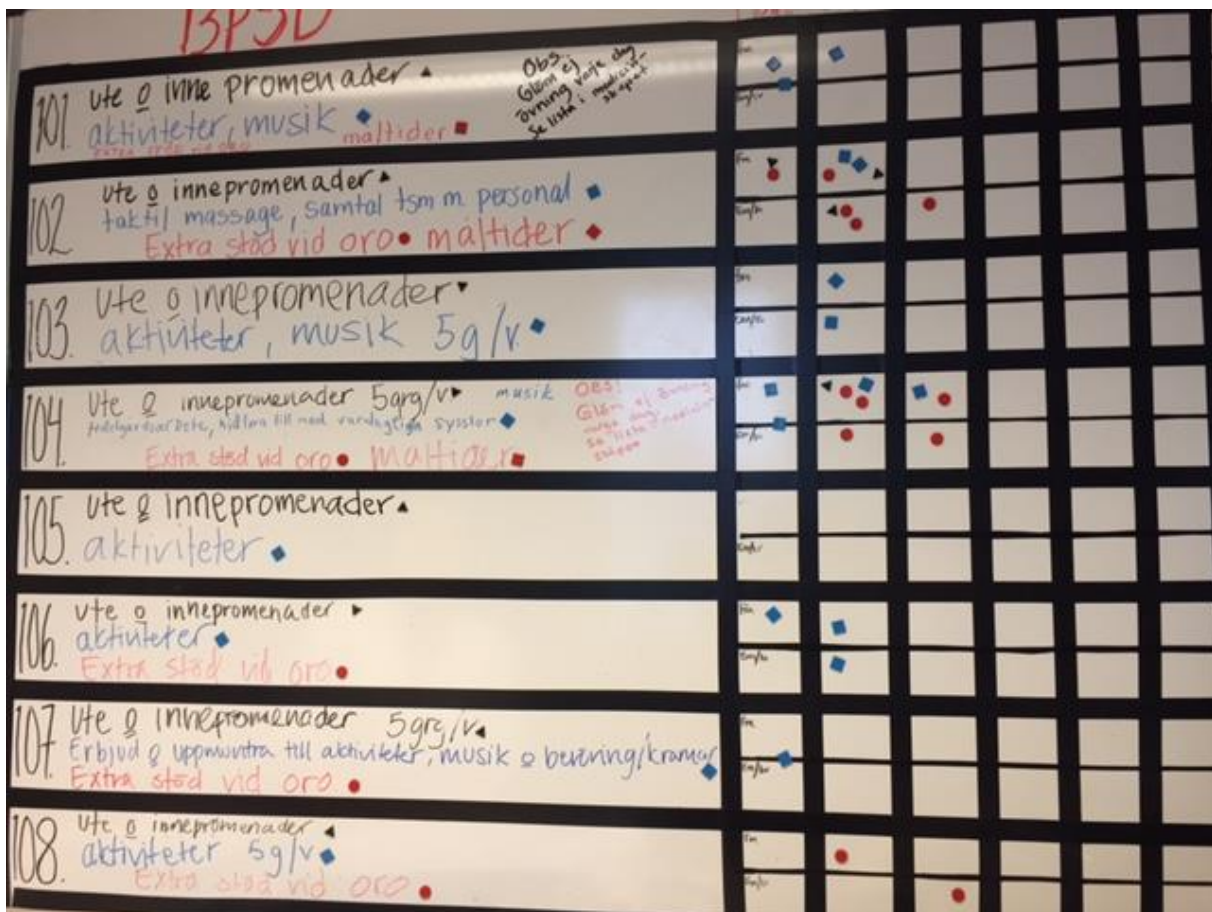 BPSD
101 Ute o inne promenader
aktiviteter, musik
måltider
Obs.
Glöm ej
övning varje dag
Se lista i medicin-
skåpet
Fm
Em/kv
102 Ute o innepromenader
taktil massage, samtal tsm m personal
Extra stöd vid oro måltider
Fm
103. Ute o innepromenader
aktiviteter, musik 5g/v.
Fm
104. Ute o innepromenader 5grg/v musik
vardagliga sysslor
Extra stöd vid oro Måltider
OBS!
Glöm ej övning
Se lista
105. Ute o innepromenader
aktiviteter
106. Ute o innepromenader
aktiviteter
Extra stöd vid oro
Fm
107. Ute o innepromenader 5grg/v
Erbjud o uppmuntra till aktiviteter, musik o berering/kramar
Extra stöd vid oro
Fm
108. Ute o innepromenader
aktiviteter 5g/v
Extra stöd vid oro
Fm